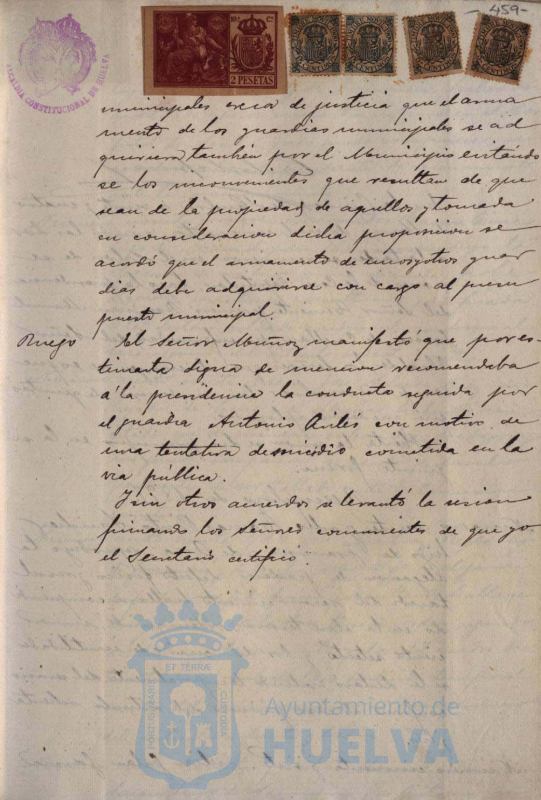 -459-
ALCALDIA CONSTITUCIONAL DE HUELVA
2 PESETAS
municipales creia de justicia que el arma
mento de los guardias municipales se ad
quiriera tambien por el Municipio evitando
se los inconvenientes que resultan de que
sean de la propiedad de aquellos y tomada
en consideracion dicha proposicion se
acordó que el armamento de unos y otros guar
dias debe adquirirse con cargo al presu
puesto municipal.
Ruego
El Señor Muñoz manifestó que por es-
timarla digna de mencion recomendaba
á la presidencia la conducta seguida por
el guardia Antonio Avilés con motivo de
una tentativa de suicidio cometida en la
via pública.
Y sin otros acuerdos se levantó la sesion
firmando los Señores concurrentes de que yo
el Secretario certifico.
ET TERRÆ
PORTUS MARIS
CUSTODIA
Ayuntamiento de
HUELVA